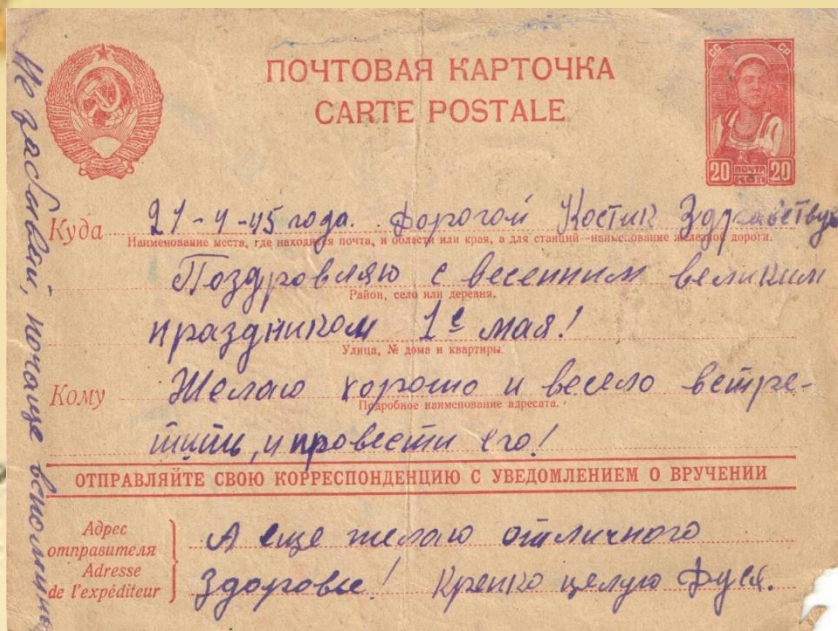 ПОЧТОВАЯ КАРТОЧКА
CARTE POSTALE
СС СР
20 ПОЧТА 20
Куда 21-4-45 года. Дорогой Костик Здравствуй
Наименование места, где находится почта, и области или края, а для станций – наименование железной дороги.
Поздровляю с весенним великим
Район, село или деревня.
праздником 1е мая!
Улица, № дома и квартиры.
Кому Желаю хорошо и весело встре-
Подробное наименование адресата.
тить, и провести его!
ОТПРАВЛЯЙТЕ СВОЮ КОРРЕСПОНДЕНЦИЮ С УВЕДОМЛЕНИЕМ О ВРУЧЕНИИ
Адрес
отправителя
Adresse
de l'expéditeur
А еще желаю отличного
здоровье! Крепко целую Дуся.
Не забывай, почаще вспоминай